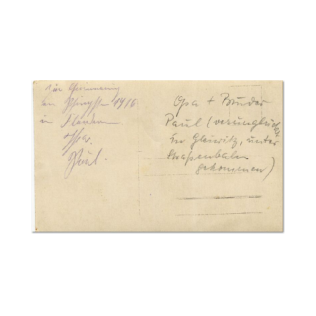 Zur Erinnerung
an Pfingsten 1916
in Flandern
Paul.
Opa + Bruder
Paul (verunglückt
in Gleiwitz, unter
Strassenbahn
gekommen)